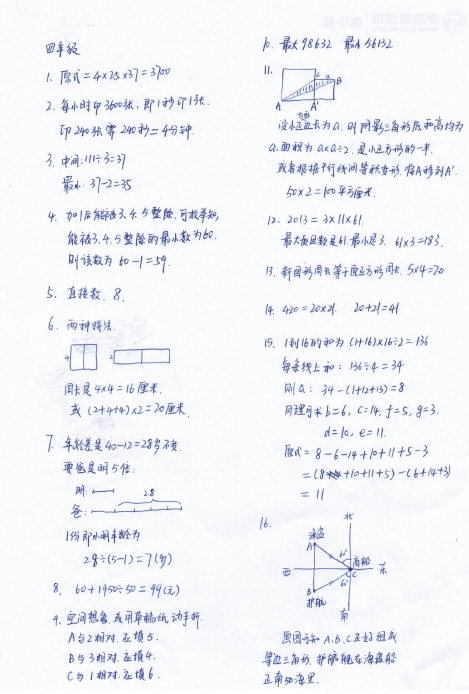 四年级
1. 原式=4×25×37=3700
2. 每小时印3600张,即1秒印1张.
印240张需240秒=4分钟.
3. 中间:111÷3=37
最小:37-2=35
4. 加1后能被3.4.5整除.可枚举知,
能被3.4.5整除的最小数为60.
则该数为 60-1=59.
5. 直接数. 8.
6. 两种拼法.
4 2
周长是4×4=16厘米.
或 (2+4+4)×2=20厘米.
7. 年龄差是40-12=28岁不变.
要爸是明5倍.
明:
28
爸:
1份即小明年龄为
28÷(5-1)=7(岁)
8. 60+1950÷50=99(元)
9. 空间想象.或用草稿纸动手折.
A与2相对.应填5.
B与3相对.应填4.
C与1相对.应填6.
10. 最大98632 最小56132
11.
C a B
A A'
设小正边长为a.则阴影三角形底和高均为
a.面积为a×a÷2.是小正方形的一半.
或者根据平行线间等积变形.将A移到A'.
50×2=100平方厘米.
12. 2013=3×11×61.
最大质因数是61.最小是3. 61×3=183.
13. 新图形周长等于原正方形周长. 5×4=20
14. 420=20×21. 20+21=41
15. 1到16的和为(1+16)×16÷2=136
每条线上和:136÷4=34
则a: 34-(1+12+13)=8
同理可求b=6, c=14, f=5, g=3.
d=10, e=11.
原式=8-6-14+10+11+5-3
=(8+10+11+5)-(6+14+3)
=11
16.
北
海盗
A
60°
商船
西 C 东
60°
B
护航
南
画图可知A.B.C正好组成
等边三角形.护航舰在海盗船
正南50海里.